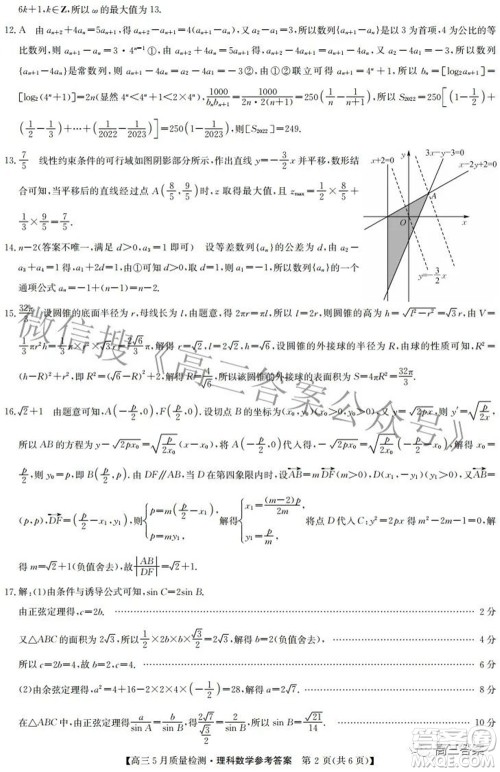 6k+1,k∈Z,所以 ω 的最大值为 13.
12. A 由 aₙ₊₂+4aₙ=5aₙ₊₁,得 aₙ₊₂-aₙ₊₁=4(aₙ₊₁-aₙ),又 a₂-a₁=3,所以数列{aₙ₊₁-aₙ}是以 3 为首项,4 为公比的等
比数列,则 aₙ₊₁-aₙ=3·4ⁿ⁻¹①,由 aₙ₊₂+4aₙ=5aₙ₊₁得,aₙ₊₂-4aₙ₊₁=aₙ₊₁-4aₙ,又 a₂-4a₁=-3,所以数列
{aₙ₊₁-4aₙ}是常数列,则 aₙ₊₁-4aₙ=a₂-4a₁=-3②,由①②联立可得 aₙ₊₁=4ⁿ+1,所以 bₙ=[log₂aₙ₊₁]=
[log₂(4ⁿ+1)]=2n(显然 4ⁿ<4ⁿ+1<2×4ⁿ),1000/(bₙbₙ₊₁)=1000/(2n·2(n+1))=250(1/n-1/(n+1)),所以 S₂₀₂₂=250[(1-1/2)+
(1/2-1/3)+…+(1/2022-1/2023)]=250(1-1/2023),则[S₂₀₂₂]=249.
13. 7/5 线性约束条件的可行域如图阴影部分所示,作出直线 y=-3/2x 并平移,数形结
合可知,当平移后的直线经过点 A(8/5,9/5)时,z 取得最大值,且 zₘₐₓ=1/2×8/5+
1/3×9/5=7/5.
x+2=0
y
3x-y-3=0
A
O
x
y=-3/2x
14. n-2(答案不唯一,满足 d>0,a₃=1 即可) 设等差数列{aₙ}的公差为 d,由 a₂-
a₃+a₄=1 得,a₁+2d=1,由①可知 d>0,取 d=1,则 a₁=-1,所以数列{aₙ}的一个
通项公式 aₙ=-1+(n-1)=n-2.
15. 32π/3 设圆锥的底面半径为 r,母线长为 l,由题意,得 2πr=πl,所以 l=2r,则圆锥的高为 h=√(l²-r²)=√3r,由 V=
1/3πr²h=1/3π×r²×√3r=2√6/3π,解得 r=√2,l=2√2,h=√6,设圆锥的外接球的半径为 R,由球的性质可知,R²=
(h-R)²+r²,即 R²=(√6-R)²+2,解得 R=4/√6,所以该圆锥的外接球的表面积为 S=4πR²=32π/3.
16. √2+1 由题意可知,A(-p/2,0),F(p/2,0),设切点 B 的坐标为(x₀,y₀)(x₀>0,y₀>0),又 y=√(2px),则 y′=√(p/2x),
所以 AB 的方程为 y-√(2px₀)=√(p/2x₀)(x-x₀),将 A(-p/2,0)代入得,-√(2px₀)=√(p/2x₀)(-p/2-x₀),解得 x₀=
p/2,则 y₀=p,即 B(p/2,p). 由 DF∥AB,当 D 在第四象限内时,设AB=mDF(m>0),D(x₁,-y₁)(y₁>0),又AB=
(p,p),DF=(p/2-x₁,y₁),则{p=m(p/2-x₁), p=my₁, 解得{x₁=(m-2)p/2m, y₁=p/m. 将点 D 代入 C:y²=2px 得 m²-2m-1=0,解
得 m=√2+1(负值舍去),故|AB|/|DF|=√2+1.
17. 解:(1)由条件与诱导公式可知,sin C=2sin B.
由正弦定理得,c=2b. 2 分
又△ABC 的面积为 2√3,所以1/2×2b×b×√3/2=2√3,解得 b=2(负值舍去), 4 分
所以 c=2b=4,故 b=2,c=4. 6 分
(2)由余弦定理得,a²=4+16-2×2×4×(-1/2)=28,解得 a=2√7. 8 分
在△ABC 中,由正弦定理得 a/sin A=b/sin B,得2√7/(√3/2)=2/sin B,所以 sin B=√21/14. 10 分
【高三5月质量检测·理科数学参考答案 第 2 页(共 6 页)】
微信搜《高三答案公众号》
高三答案